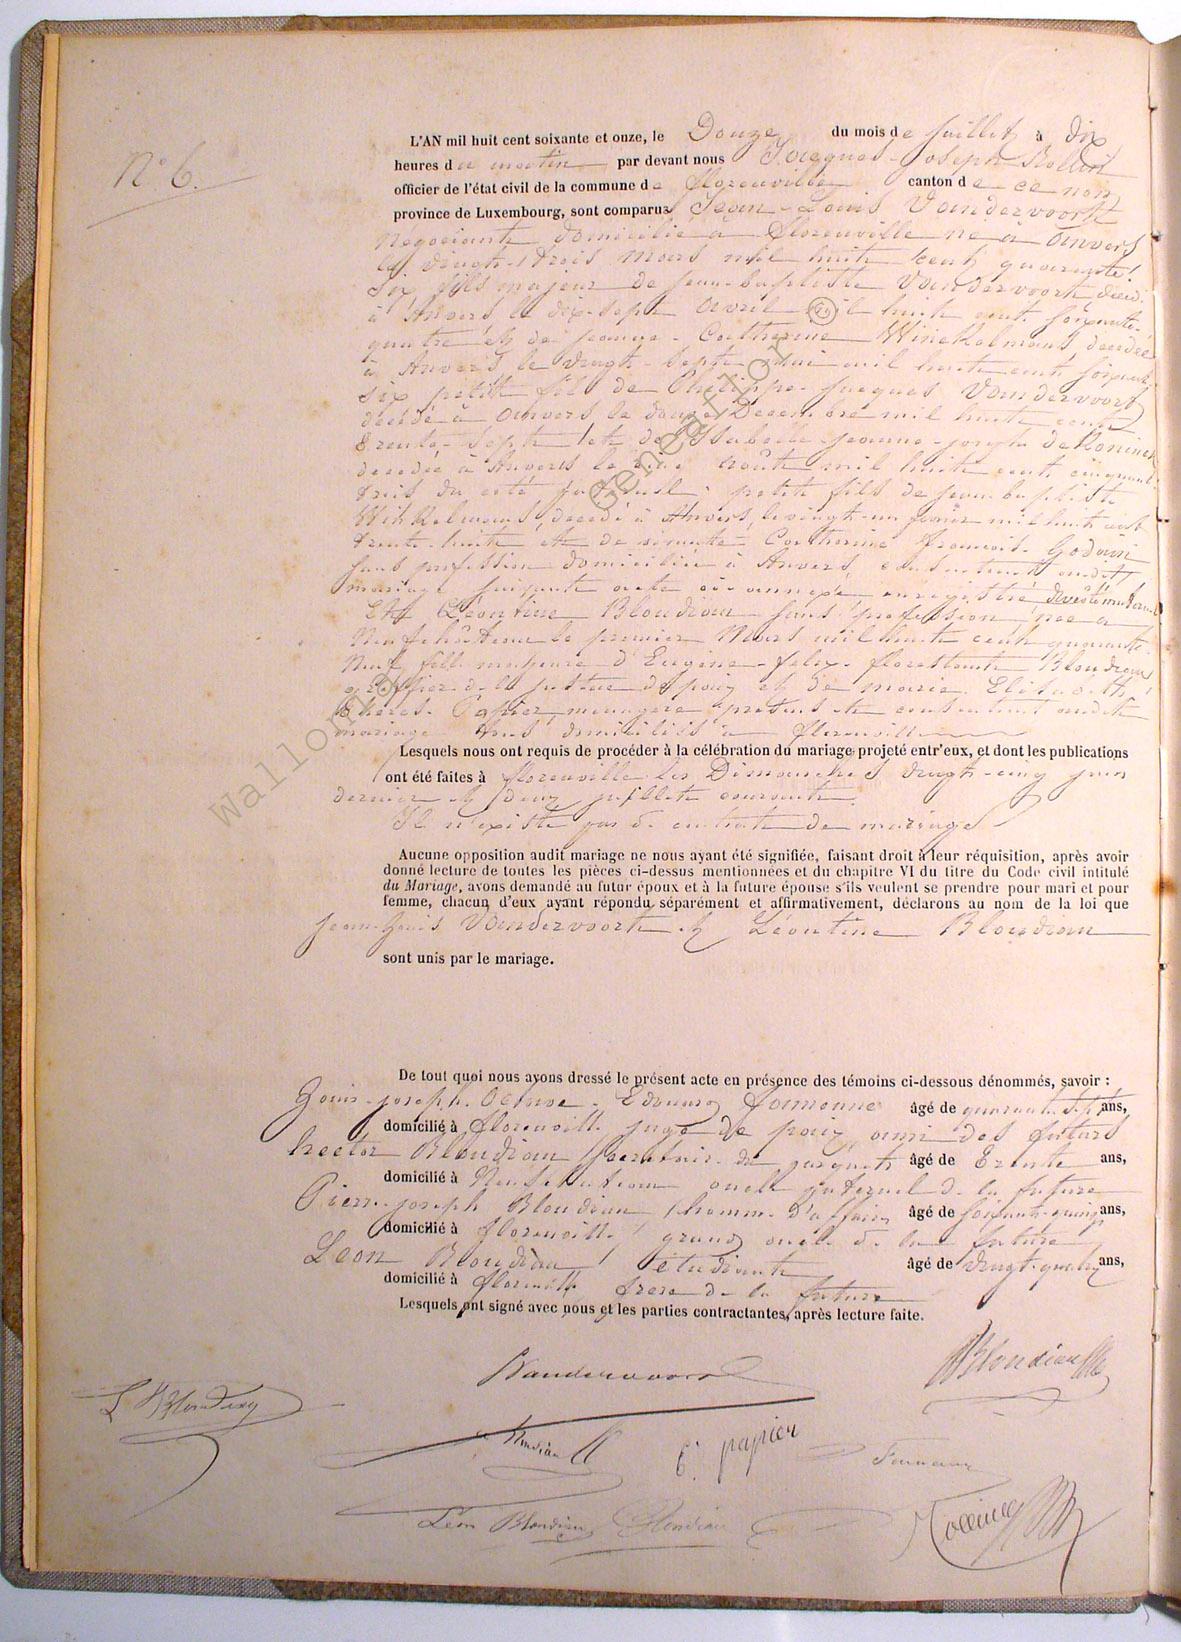 N° 6.
L'AN mil huit cent soixante et onze, le Douze du mois de juillet à dix
heures du matin par devant nous Jacques-Joseph Rollin
officier de l'état civil de la commune de florenville canton de ce nom
province de Luxembourg, sont comparus Jean-Louis Vandervoort
Négociant domicilié à florenville né à Anvers
le vingt-trois mars mil huit cent quarante
six fils majeur de jean-baptiste Vandervoort décédé
à Anvers le dix-sept avril mil huit cent soixante-
quatre et de jeanne-Catherine Winckelmans décédée
à Anvers le vingt-sept mai mil huit cent soixante
six petit fils de Philippe-jacques Vandervoort
décédé à Anvers le douze Décembre mil huit cent
trente-sept et de Isabelle-jeanne-joseph deKoninck
décédée à Anvers le août mil huit cent cinquante
trois du côté paternel. petit fils de jean baptiste
Winkelmans, décédé à Anvers, le vingt-un février mil huit cent
trente-huit et de Catherine Godain
sans profession domiciliée à Anvers, consentant audit
mariage suivant acte ci-annexé enregistré du côté maternel
Et Léontine Blondiau sans profession née à
Neufchâteau le premier Mars mil huit cent quarante-
Neuf fille majeure d'Eugène-felix-florestant Blondiau
greffier de la justice de paix et de marie Elisabeth
Thérèse Papier, ménagère présents et consentant audit
mariage tous domiciliés à florenville
Lesquels nous ont requis de procéder à la célébration du mariage projeté entr'eux, et dont les publications
ont été faites à florenville les Dimanches vingt-cinq juin
dernier et deux juillet courant.
Il n'existe pas de contrat de mariage
Aucune opposition audit mariage ne nous ayant été signifiée, faisant droit à leur réquisition, après avoir
donné lecture de toutes les pièces ci-dessus mentionnées et du chapitre VI du titre du Code civil intitulé
du Mariage, avons demandé au futur époux et à la future épouse s'ils veulent se prendre pour mari et pour
femme, chacun d'eux ayant répondu séparément et affirmativement, déclarons au nom de la loi que
jean-Louis Vandervoort et Léontine Blondiau
sont unis par le mariage.
De tout quoi nous avons dressé le présent acte en présence des témoins ci-dessous dénommés, savoir :
Louis-joseph-Octave-Edouard âgé de quarante sept ans,
domicilié à florenville juge de paix, ami des futurs
hector Blondiau secrétaire du parquet âgé de trente ans,
domicilié à Neufchateau oncle paternel de la future
Pierre-joseph Blondiau homme d'affaires âgé de soixante-quinze ans,
domicilié à florenville grand oncle de la future
Léon Blondiau étudiant âgé de vingt-quatre ans,
domicilié à florenville frere de la future
Lesquels ont signé avec nous et les parties contractantes, après lecture faite.
Vandervoort
Blondiau
L Blondiau
Blondiau
E. papier
Léon Blondiau
Blondiau
Wallonia
Geneaflor